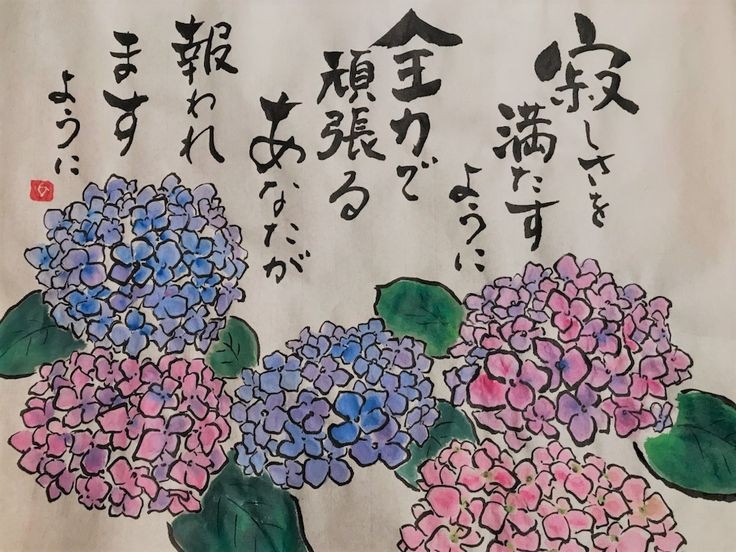 寂しさを
満たす
ように
全力で
頑張る
あなたが
報われ
ます
ように